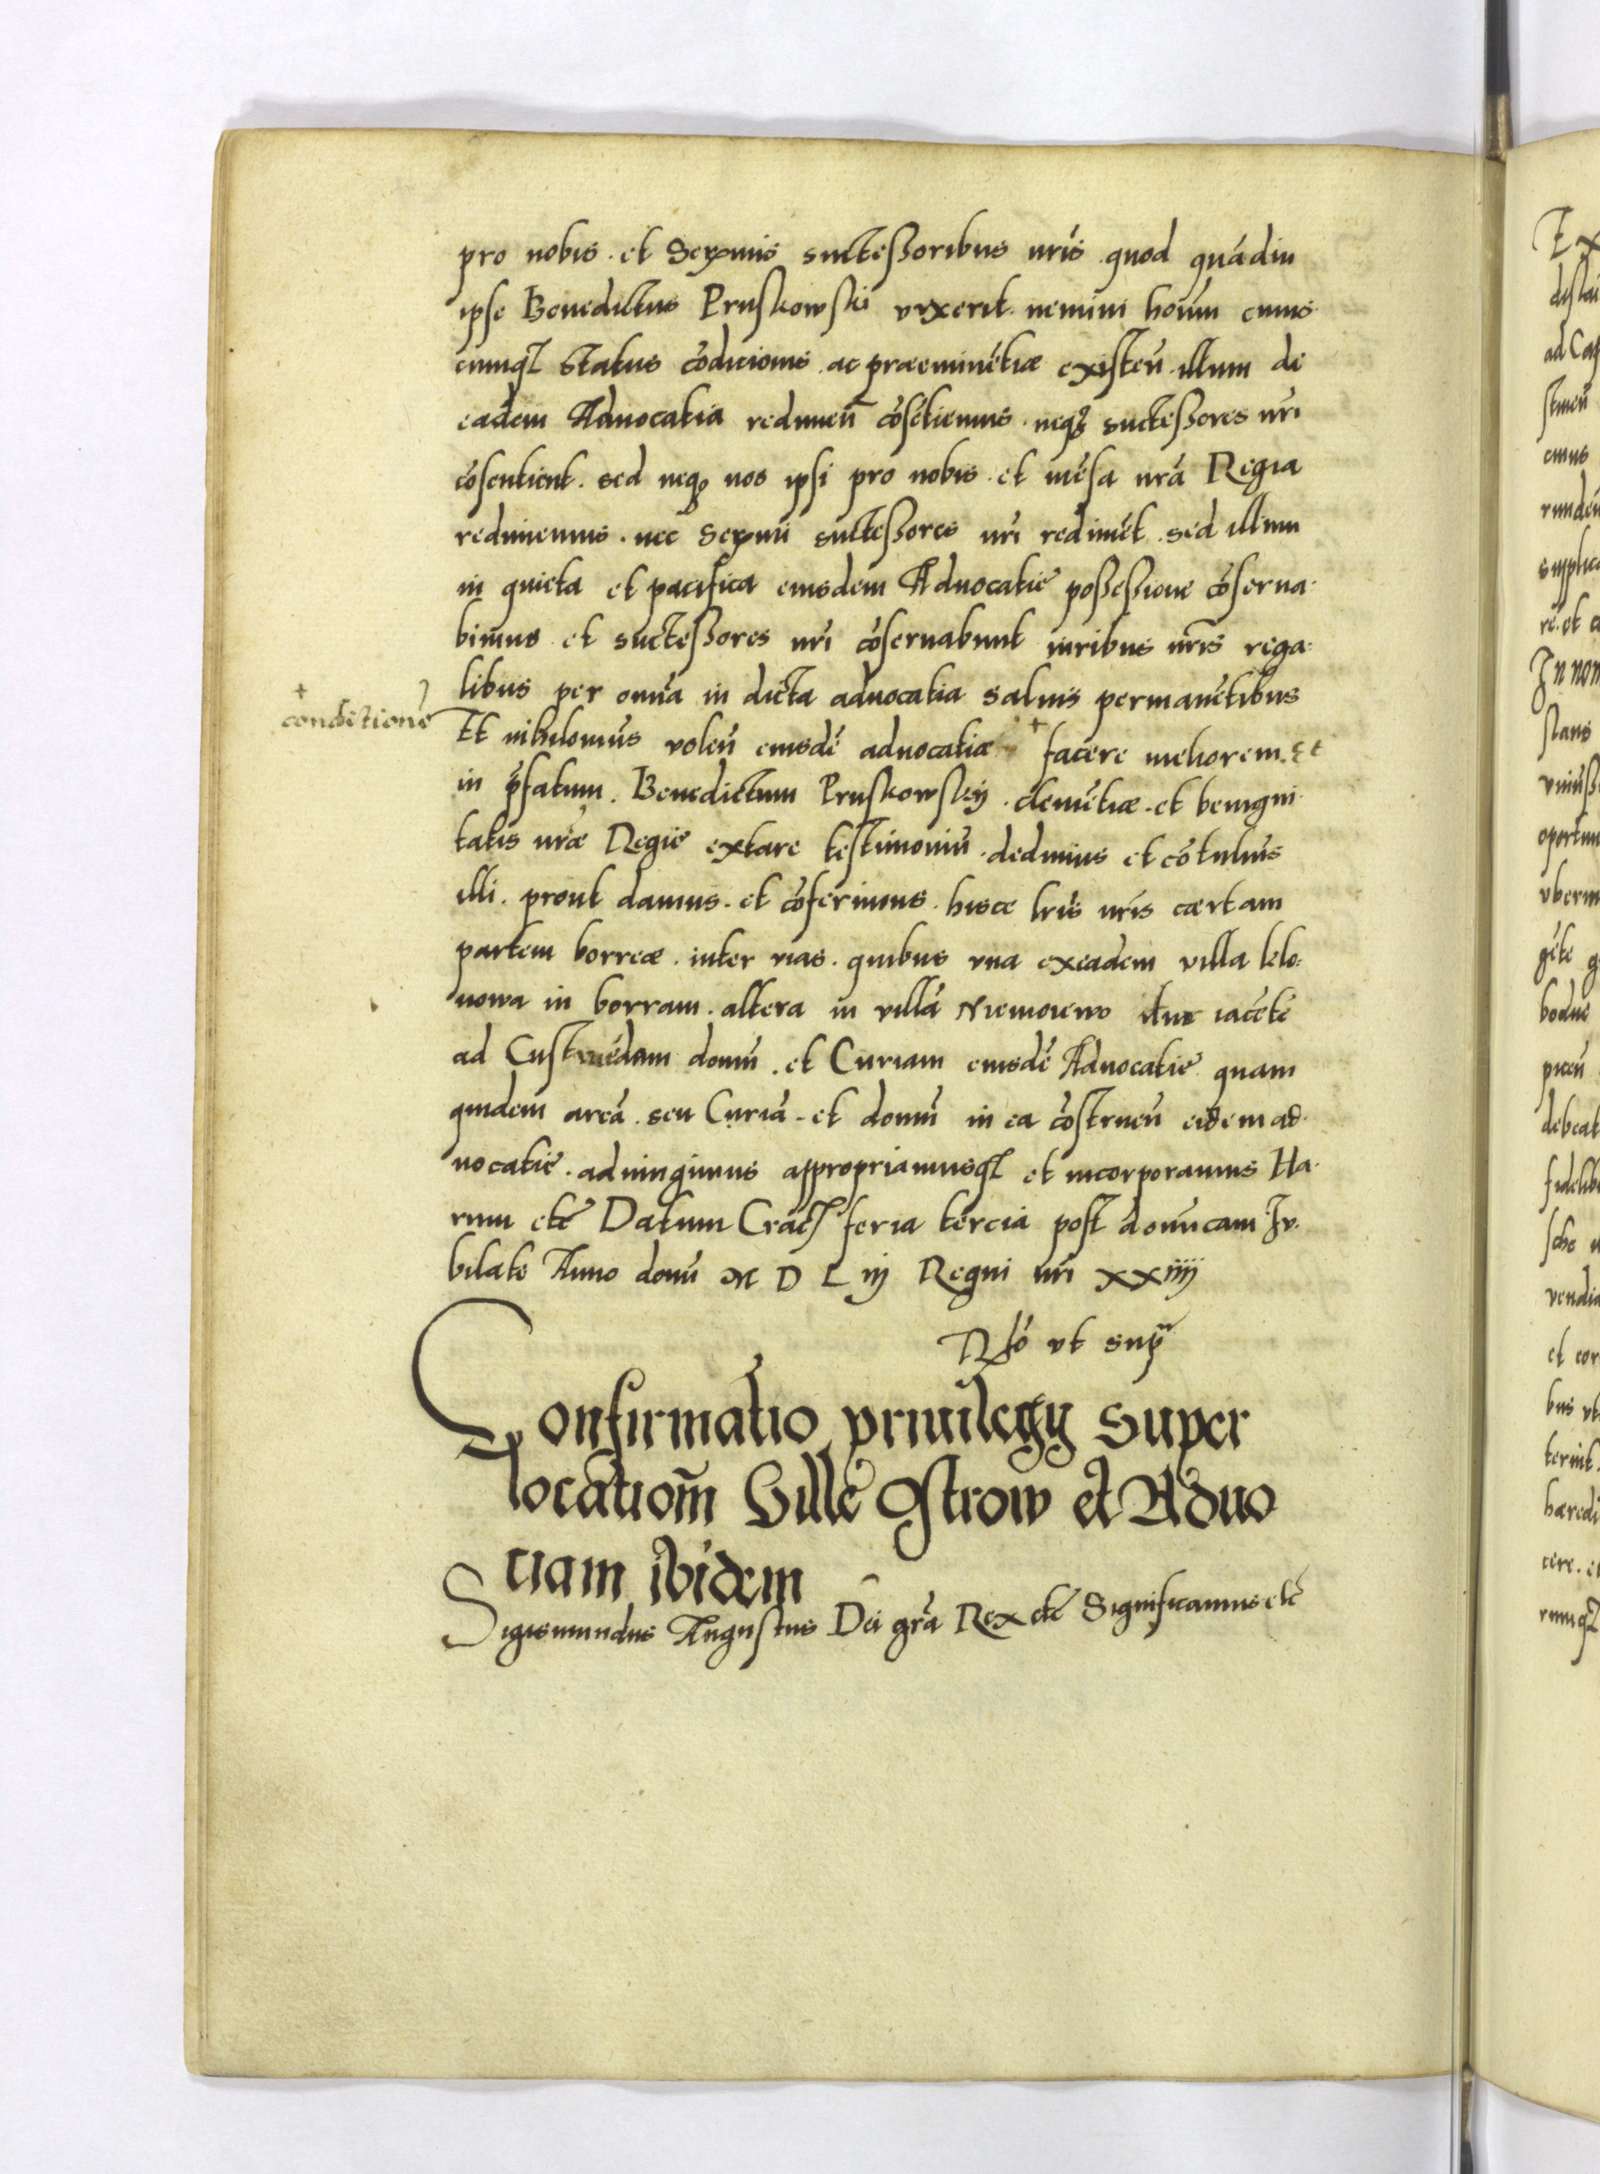 pro nobis . et Sereniss successoribus nris quod quādiu
ipse Benedictus Pruskowski vixerit nemini hoīum cuius-
cumq̨ status cōdicionis ac praeminētiæ existeñ illum de
eadem Aduocatia redimeñ cōsētiemus . neq̨ successores nri
cōsentient . sed neq̨ nos ipsi pro nobis et mēsa nrā Regia
redimemus . nec Sereniss successores nri redimēt . sed illum
in quieta et pacifica eiusdem Aduocatiē possessione cōserua-
bimus et successores nri cōseruabunt iuribus nris rega-
libus per omīa in dicta aduocatia saluis permanētibus
+
conditionē
Et nihilominus voleñ eiusdē aduocatiæ + facere meliorem . Et
in p̄fatum . Benedictum Pruskowskij . clemētiæ . et benigni-
tatis nræ Regiē extare testimoniū . dedimus et cōtulīus
illi . prout damus . et cōferimus . hisce lris nris cærtam
partem borreæ . inter vias . quibus vna ex eadem villa lelo-
nowa in borram . altera in villā Niemoiewo itur iacētē
ad Custruēdam domū . et Curiam eiusdē Aduocatiē quam
quidem areā . seu Curiā . et domū in ea cōstrueñ eidem ad-
uocatiē . adiungimus appropriamusq̨ et incorporamus Ha-
rum etc̄ Datum Cracȩ feria tercia post domīcam Iu-
bilate Anno domī M D L iij Regni nri xxiiij
Rlō vt supᵃ
Confirmatio priuilegij super
locationē Villē Ostrow et Aduo
ciam ibidem
Sigismundus Augustus Dei grā Rex etc̄ Significamus etc̄